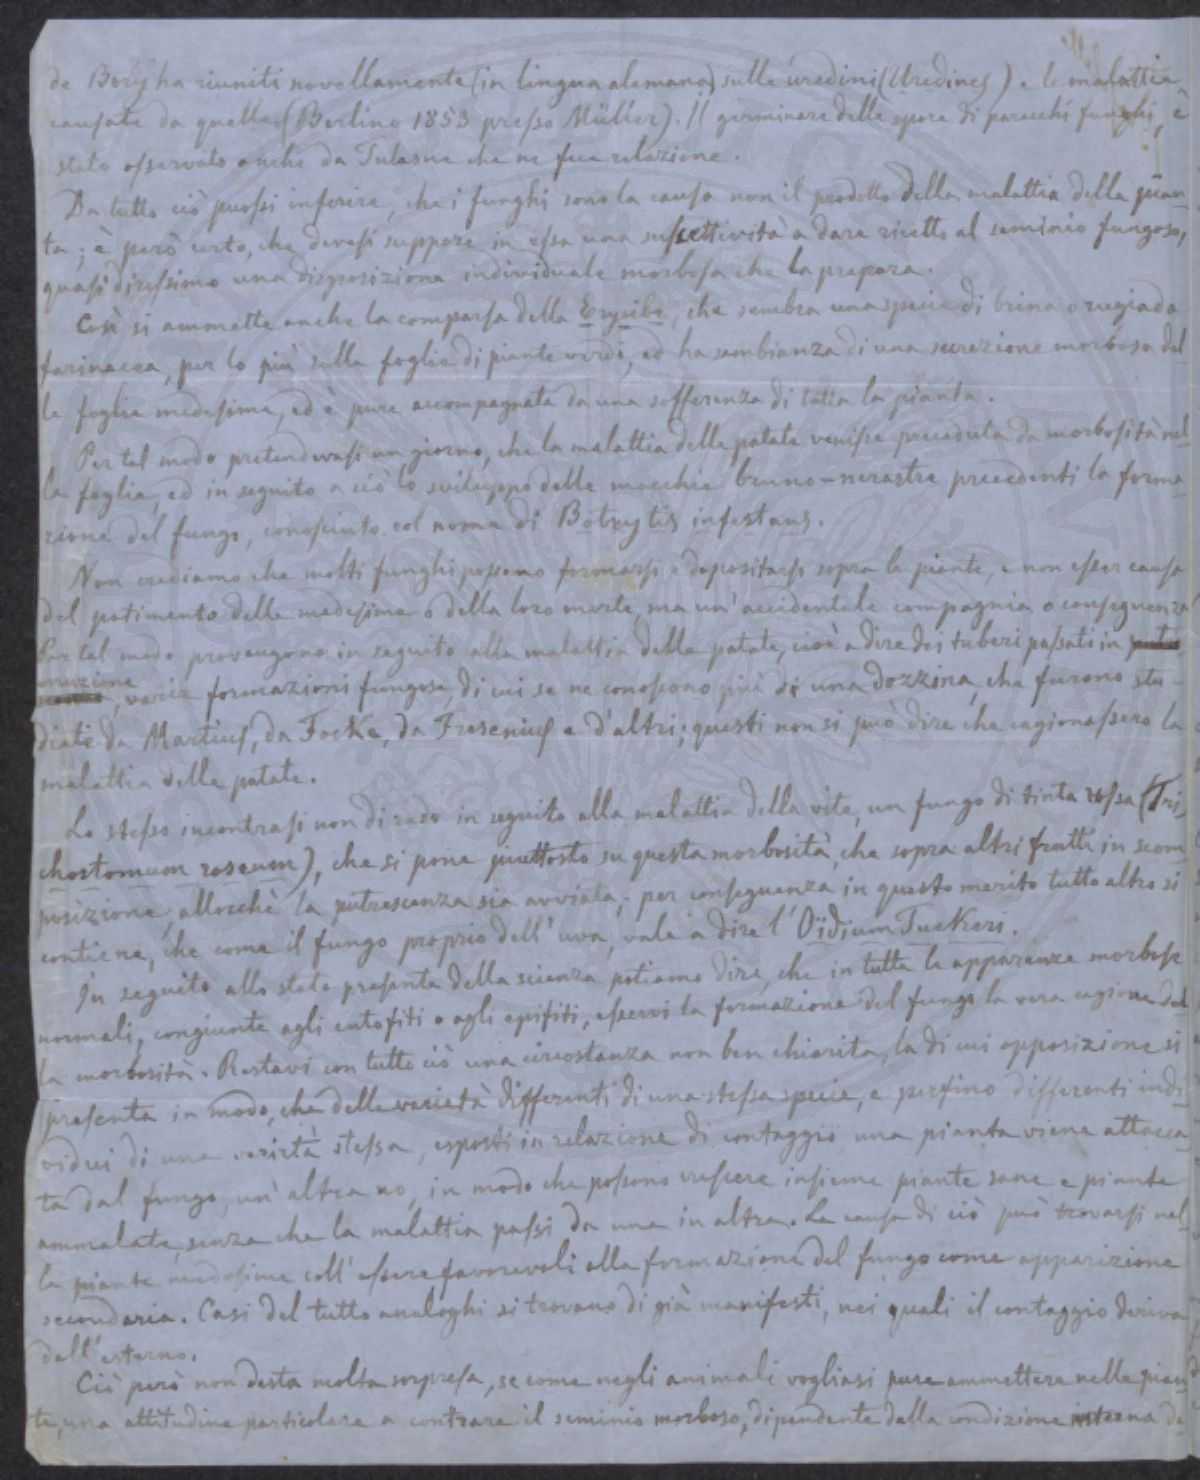 de Bary ha riuniti novellamente (in lingua alemana) sulle uredini (Uredines) e le malattie
causate da quelle (Berlino 1853 presso Müller). Il germinare delle spore di parecchi funghi, è
stato osservato anche da Tulasne che ne fece relazione.
Da tutto ciò puossi inferire, che i funghi sono la causa non il prodotto della malattia della pian
ta; è però certo, che devesi suppore in essa una suscettività a dare ricetto al seminio fungoso,
quasi diressimo una disposizione individuale morbosa che la prepara.
Così si ammette anche la comparsa della Erysibe, che sembra una specie di brina o rugiada
farinacea, per lo più sulle foglie di piante verdi, ed ha sembianza di una secrezione morbosa del
le foglie medesime, ed è pure accompagnata da una sofferenza di tutta la pianta.
Per tal modo pretendevasi un giorno, che la malattia delle patate venisse preceduta da morbosità nel
le foglie, ed in seguito a ciò lo sviluppo delle macchie bruno-nerastre precedenti la forma
zione del fungo, conosciuto col nome di Botrytis infestans.
Non crediamo che molti funghi possono formarsi e depositarsi sopra le piante, e non esser causa
del patimento delle medesime o della loro morte, ma un'accidentale compagnia o conseguenza
Per tal modo provengono in seguito alla malattia delle patate, cioè a dire dei tuberi passati in
, varie formazioni fungose, di cui se ne conoscono più di una dozzina, che furono stu-
diate da Martius, da Focke, da Fresenius e d'altri; questi non si può dire che cagionassero la
malattia delle patate.
Lo stesso incontrasi non di rado in seguito alla malattia della vite, un fungo di tinta rossa (Tri
chostomum roseum), che si pone piuttosto su questa morbosità, che sopra altri frutti in scom
posizione, allocchè la putrescenza sia avviata; per conseguenza in questo merito tutto altro si
contiene, che come il fungo proprio dell'uva, vale a dire l'Oïdium Tuckeri.
In seguito allo stato presente della scienza potiamo dire, che in tutte le apparenze morbose
normali, congiunte agli entofiti o agli epifiti, esservi la formazione del fungo la vera cagione del
la morbosità. Restavi con tutto ciò una circostanza non ben chiarita, la di cui opposizione si
presenta in modo, che delle varietà differenti di una stessa specie, e perfino differenti indi
vidui di una varietà stessa, esposti in relazione di contaggio, una pianta viene attacca
ta dal fungo, un'altra no, in modo che possono crescere insieme piante sane e piante
ammalate, senza che la malattia passi da una in altra. La causa di ciò può trovarsi nel
le piante medesime coll'essere favorevoli alla formazione del fungo come apparizione
secondaria. Casi del tutto analoghi si trovano di già manifesti, nei quali il contaggio deriva
dall'esterno.
Ciò però non desta molta sorpresa, se come negli animali vogliasi pure ammettere nelle pian
te, una attitudine particolare a contrare il seminio morboso, dipendente dalla condizione interna de